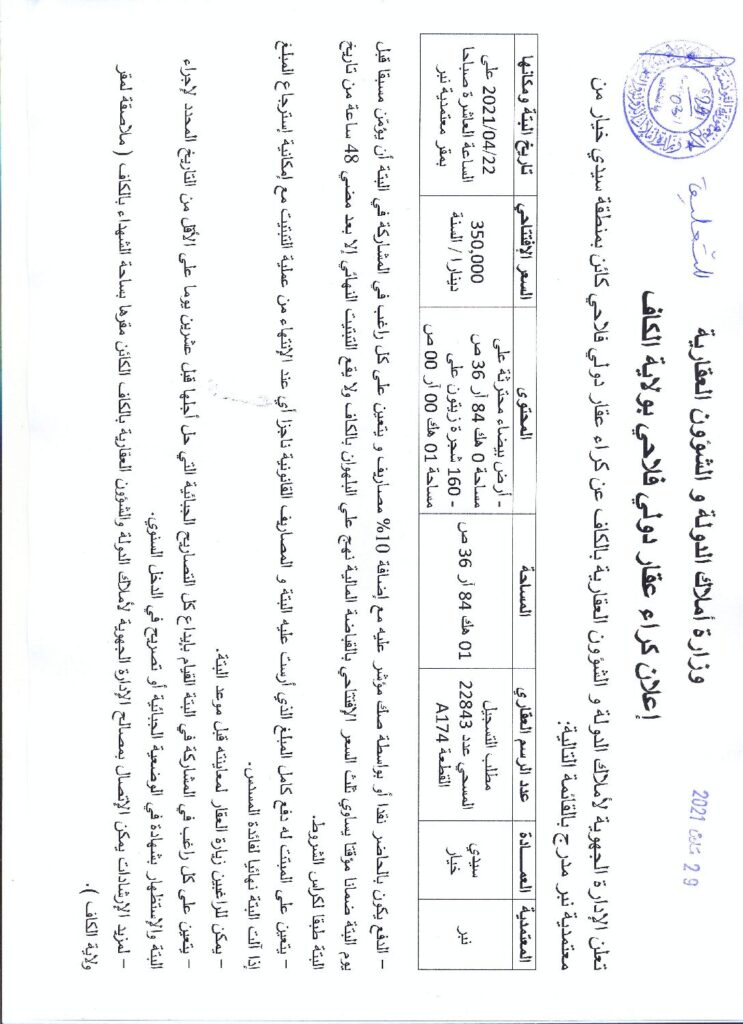 29 مارس 2021
وزارة أملاك الدولة و الشؤون العقارية
إعلان كراء عقار دولي فلاحي بولاية الكاف
تعلن الإدارة الجهوية لأملاك الدولة و الشؤون العقارية بالكاف عن كراء عقار دولي فلاحي كائن بمنطقة سيدي خيار من
معتمدية نبر مدرج بالقائمة التالية:
المعتمدية | العمـــادة | عدد الرسم العقاري | المساحة | المحتوى | السعر الإفتتاحي | تاريخ البتة ومكانها
نبر | سيدي خيار | مطلب التسجيل المسحي عدد 22843 القطعة A174 | 01 هك 84 آر 36 ص | - أرض بيضاء محترثة على مساحة 0 هك 84 آر 36 ص - 160 شجرة زيتون على مساحة 01 هك 00 آر 00 ص | 350,000 دينارا / السنة | 2021/04/22 على الساعة العاشرة صباحا بمقر معتمدية نبر
– الدفع يكون بالحاضر نقدا أو بواسطة صك مؤشر عليه مع إضافة 10% مصاريف و يتعين على كل راغب في المشاركة في البتة أن يؤمن مسبقا قبل
يوم البتة ضمانا مؤقتا يساوي ثلث السعر الإفتتاحي بالقباضة المالية نهج علي البلهوان بالكاف ولا يقع التبتيت النهائي إلا بعد مضي 48 ساعة من تاريخ
البتة طبقا لكراس الشروط.
– يتعين على المبتت له دفع كامل المبلغ الذي أرست عليه البتة و المصاريف القانونية ناجزا أي عند الإنتهاء من عملية التبتيت مع إمكانية إسترجاع المبلغ
إذا آلت البتة نهائيا لفائدة المسدس.
– يمكن للراغبين زيارة العقار لمعاينته قبل موعد البتة.
– يتعين على كل راغب في المشاركة في البتة القيام بإيداع كل التصاريح الجبائية التي حل أجلها قبل عشرين يوما على الأقل من التاريخ المحدد لإجراء
البتة والإستظهار بشهادة في الوضعية الجبائية أو تصريح في الدخل السنوي.
– لمزيد الإرشادات يمكن الإتصال بمصالح الإدارة الجهوية لأملاك الدولة والشؤون العقارية بالكاف الكائن مقرها بساحة الشهداء بالكاف ( ملاصقة لمقر
ولاية الكاف ).